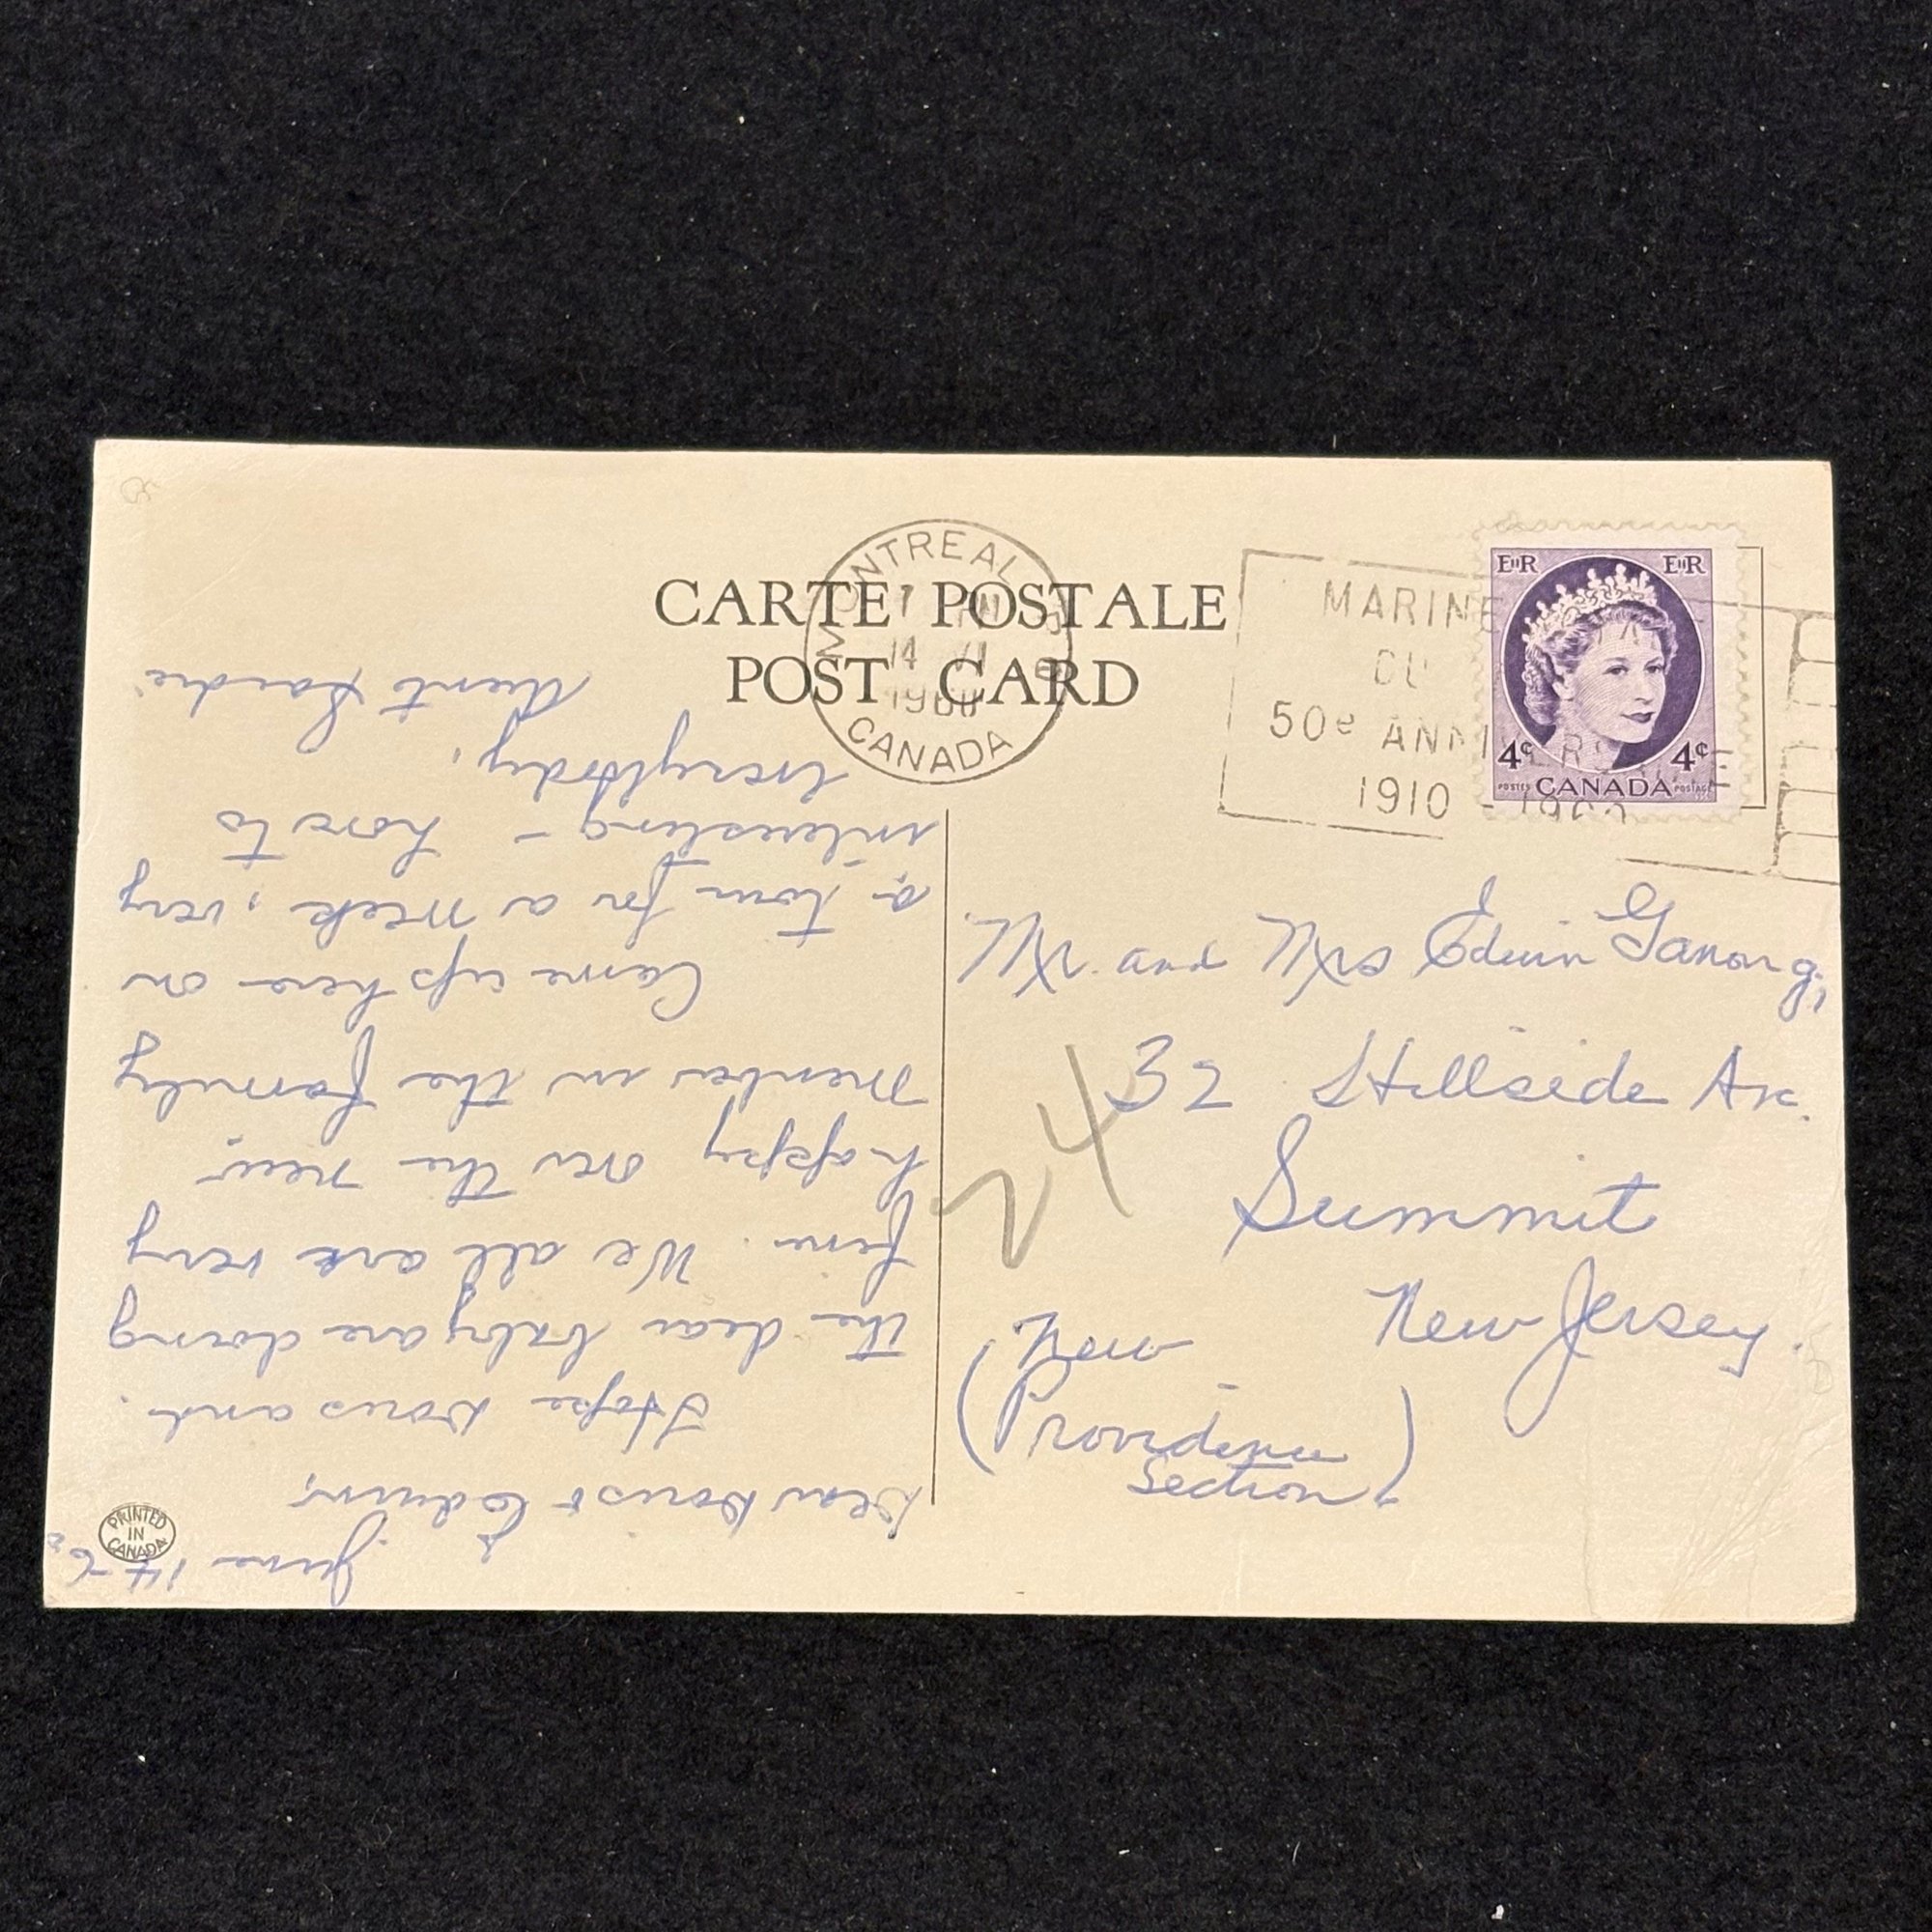 CARTE POSTALE
POST CARD
MONTREAL
14 VI
1960
CANADA
MARINE
DU
50e ANNIVERSAIRE
1910 - 1960
EIIR EIIR
4¢ 4¢
POSTES CANADA POSTAGE
Mr. and Mrs Edwin Ganong,
32 Hillside Av.
Summit
New Jersey.
(New
Providence
Section)
24
PRINTED
IN
CANADA
June 14-60
Dear Doris & Edwin,
Hope Doris and
the dear baby are doing
fine. We all are very
happy over the new
member in the family
Came up here on
a tour for a week, very
interesting - love to
everybody,
Aunt Sadie